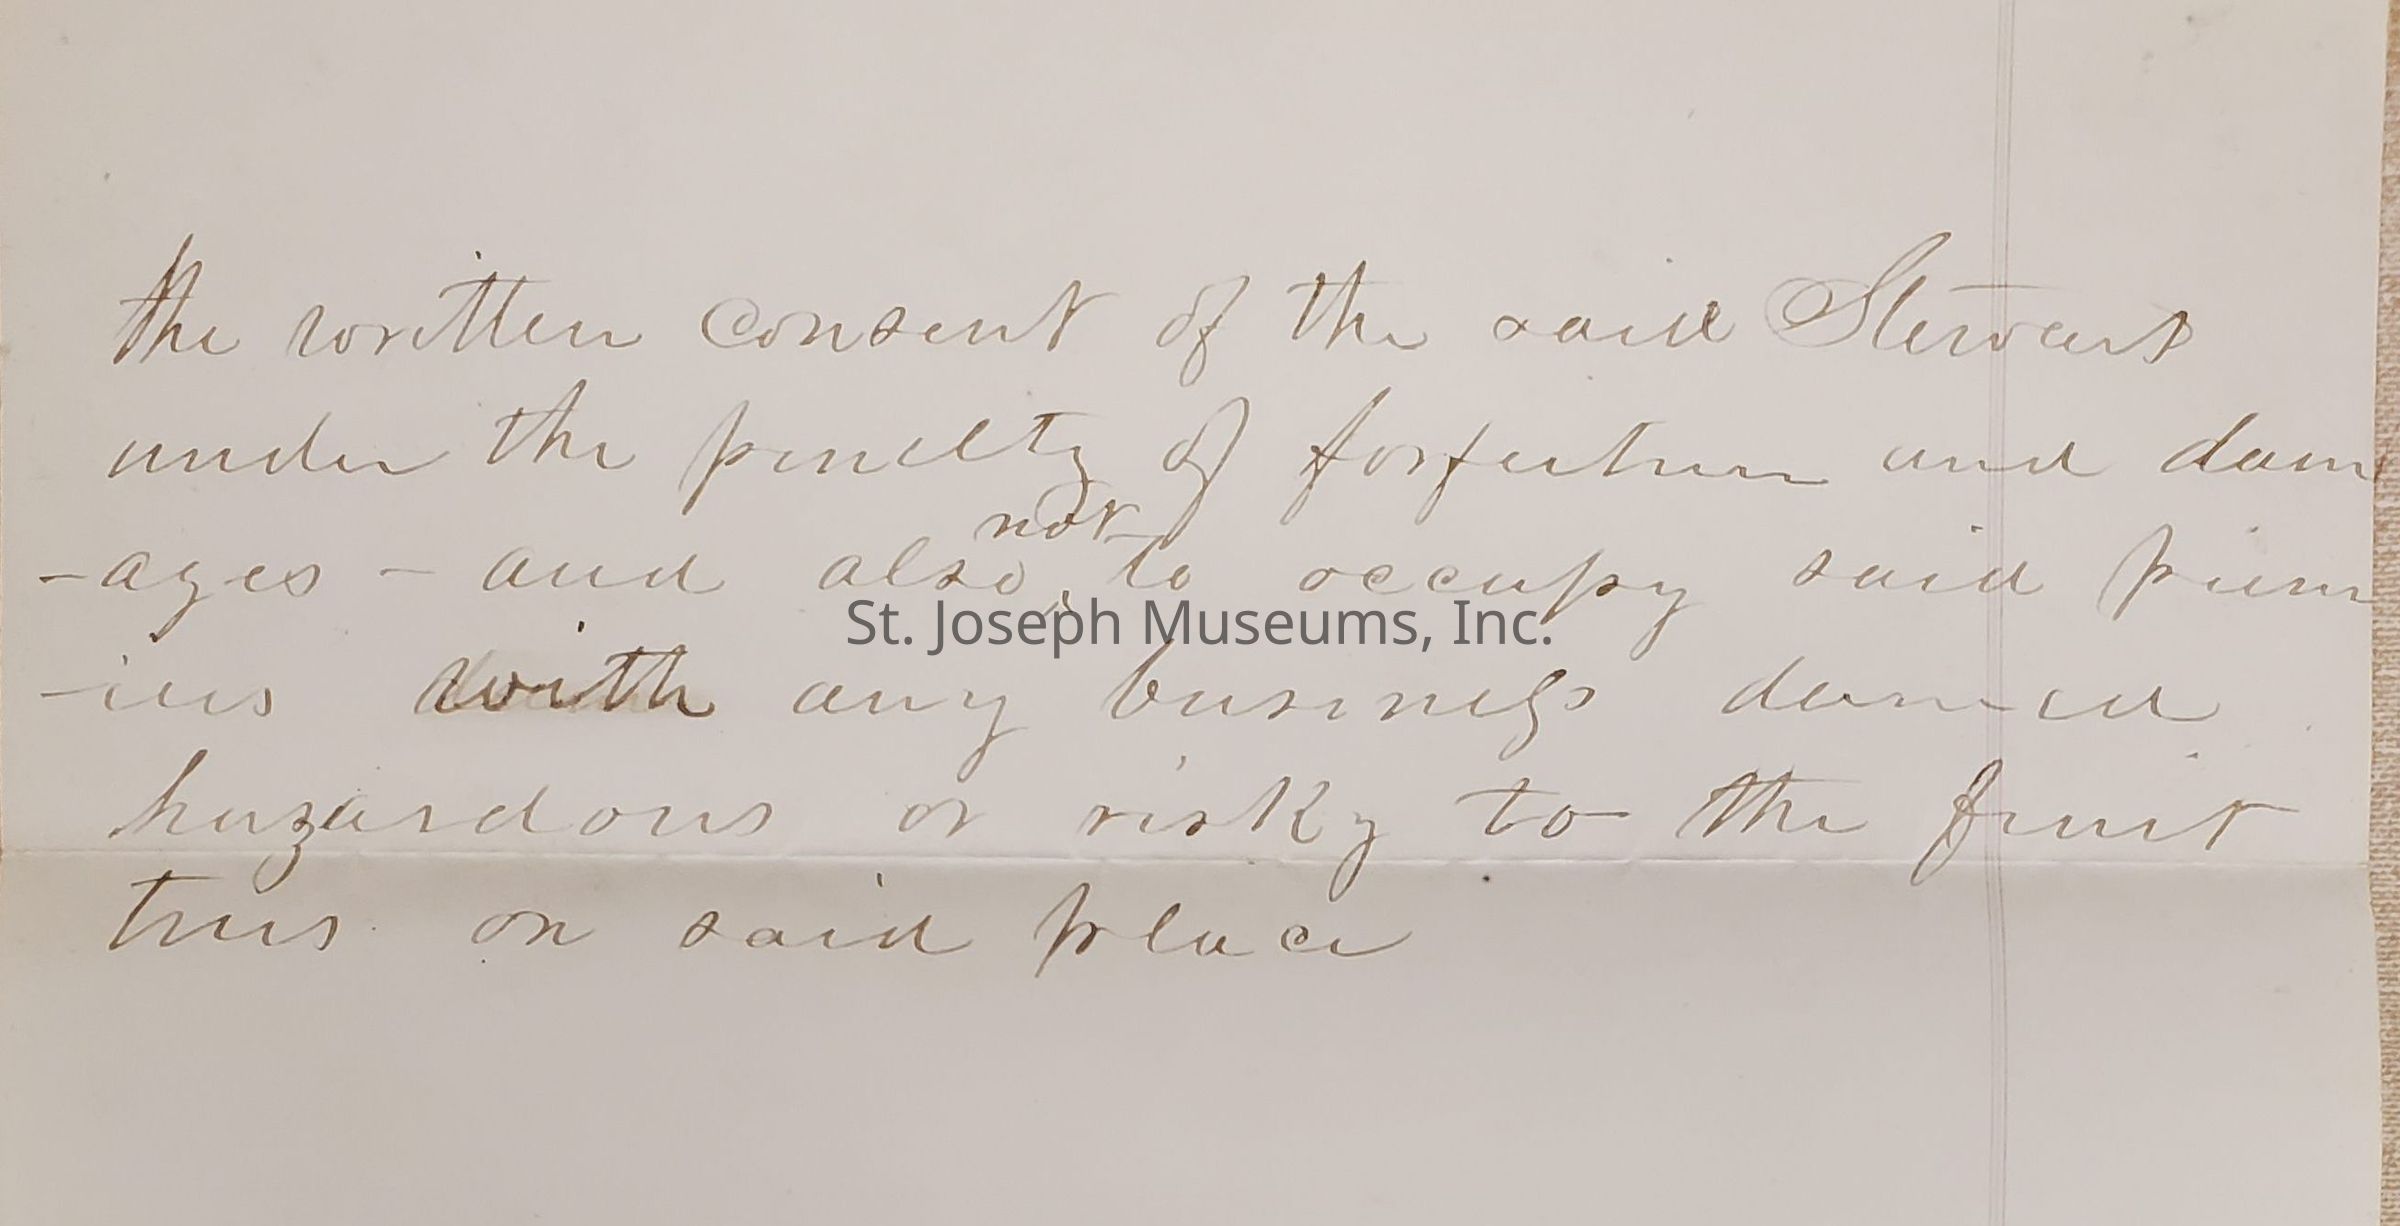 the written consent of the said Stewart
under the penelty of forfeiture and dam
-ages - and also not to occupy said prem
-ises with any business deemed
hazardous or risky to the fruit
trees on said place
St. Joseph Museums, Inc.